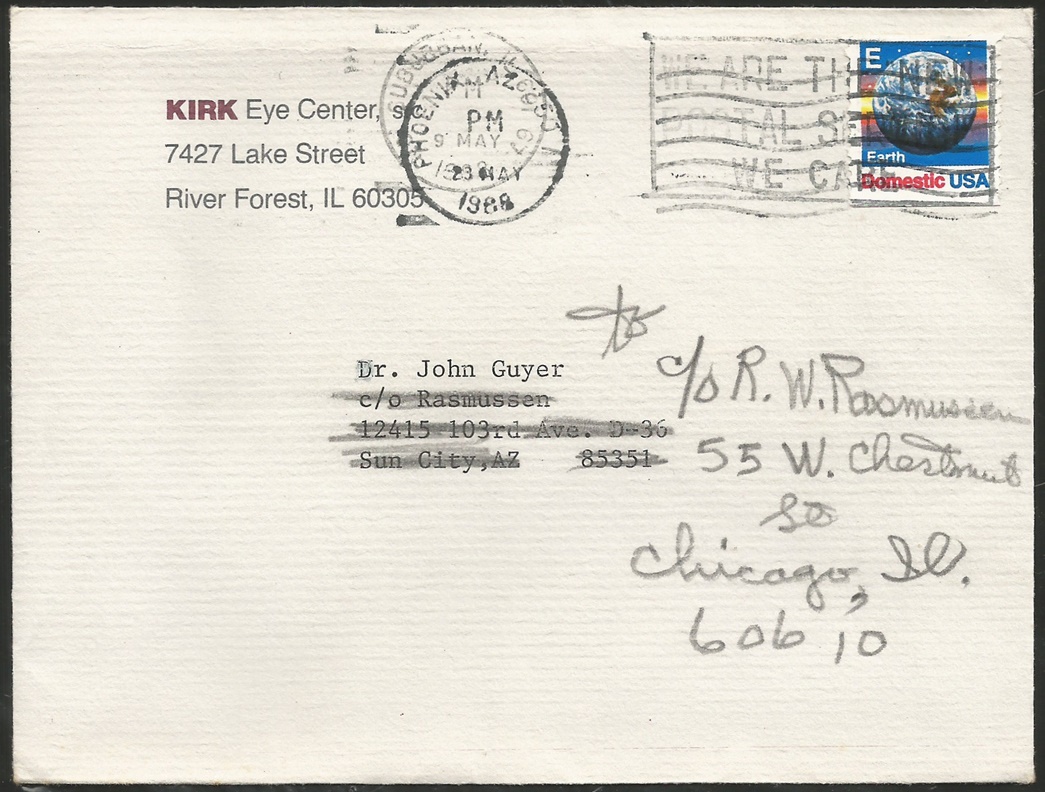 KIRK Eye Center,
7427 Lake Street
River Forest, IL 60305
SUBURBAN, IL
PM
9 MAY
PHOENIX AZ
PM
23 MAY
1988
WE ARE THE NEW
POSTAL
WE CARE
E
Earth
Domestic USA
to
Dr. John Guyer
c/o Rasmussen
12415 103rd Ave. D-36
Sun City,AZ 85351
c/o R. W. Rasmussen
55 W. Chestnut
St
Chicago, Ill.
60610